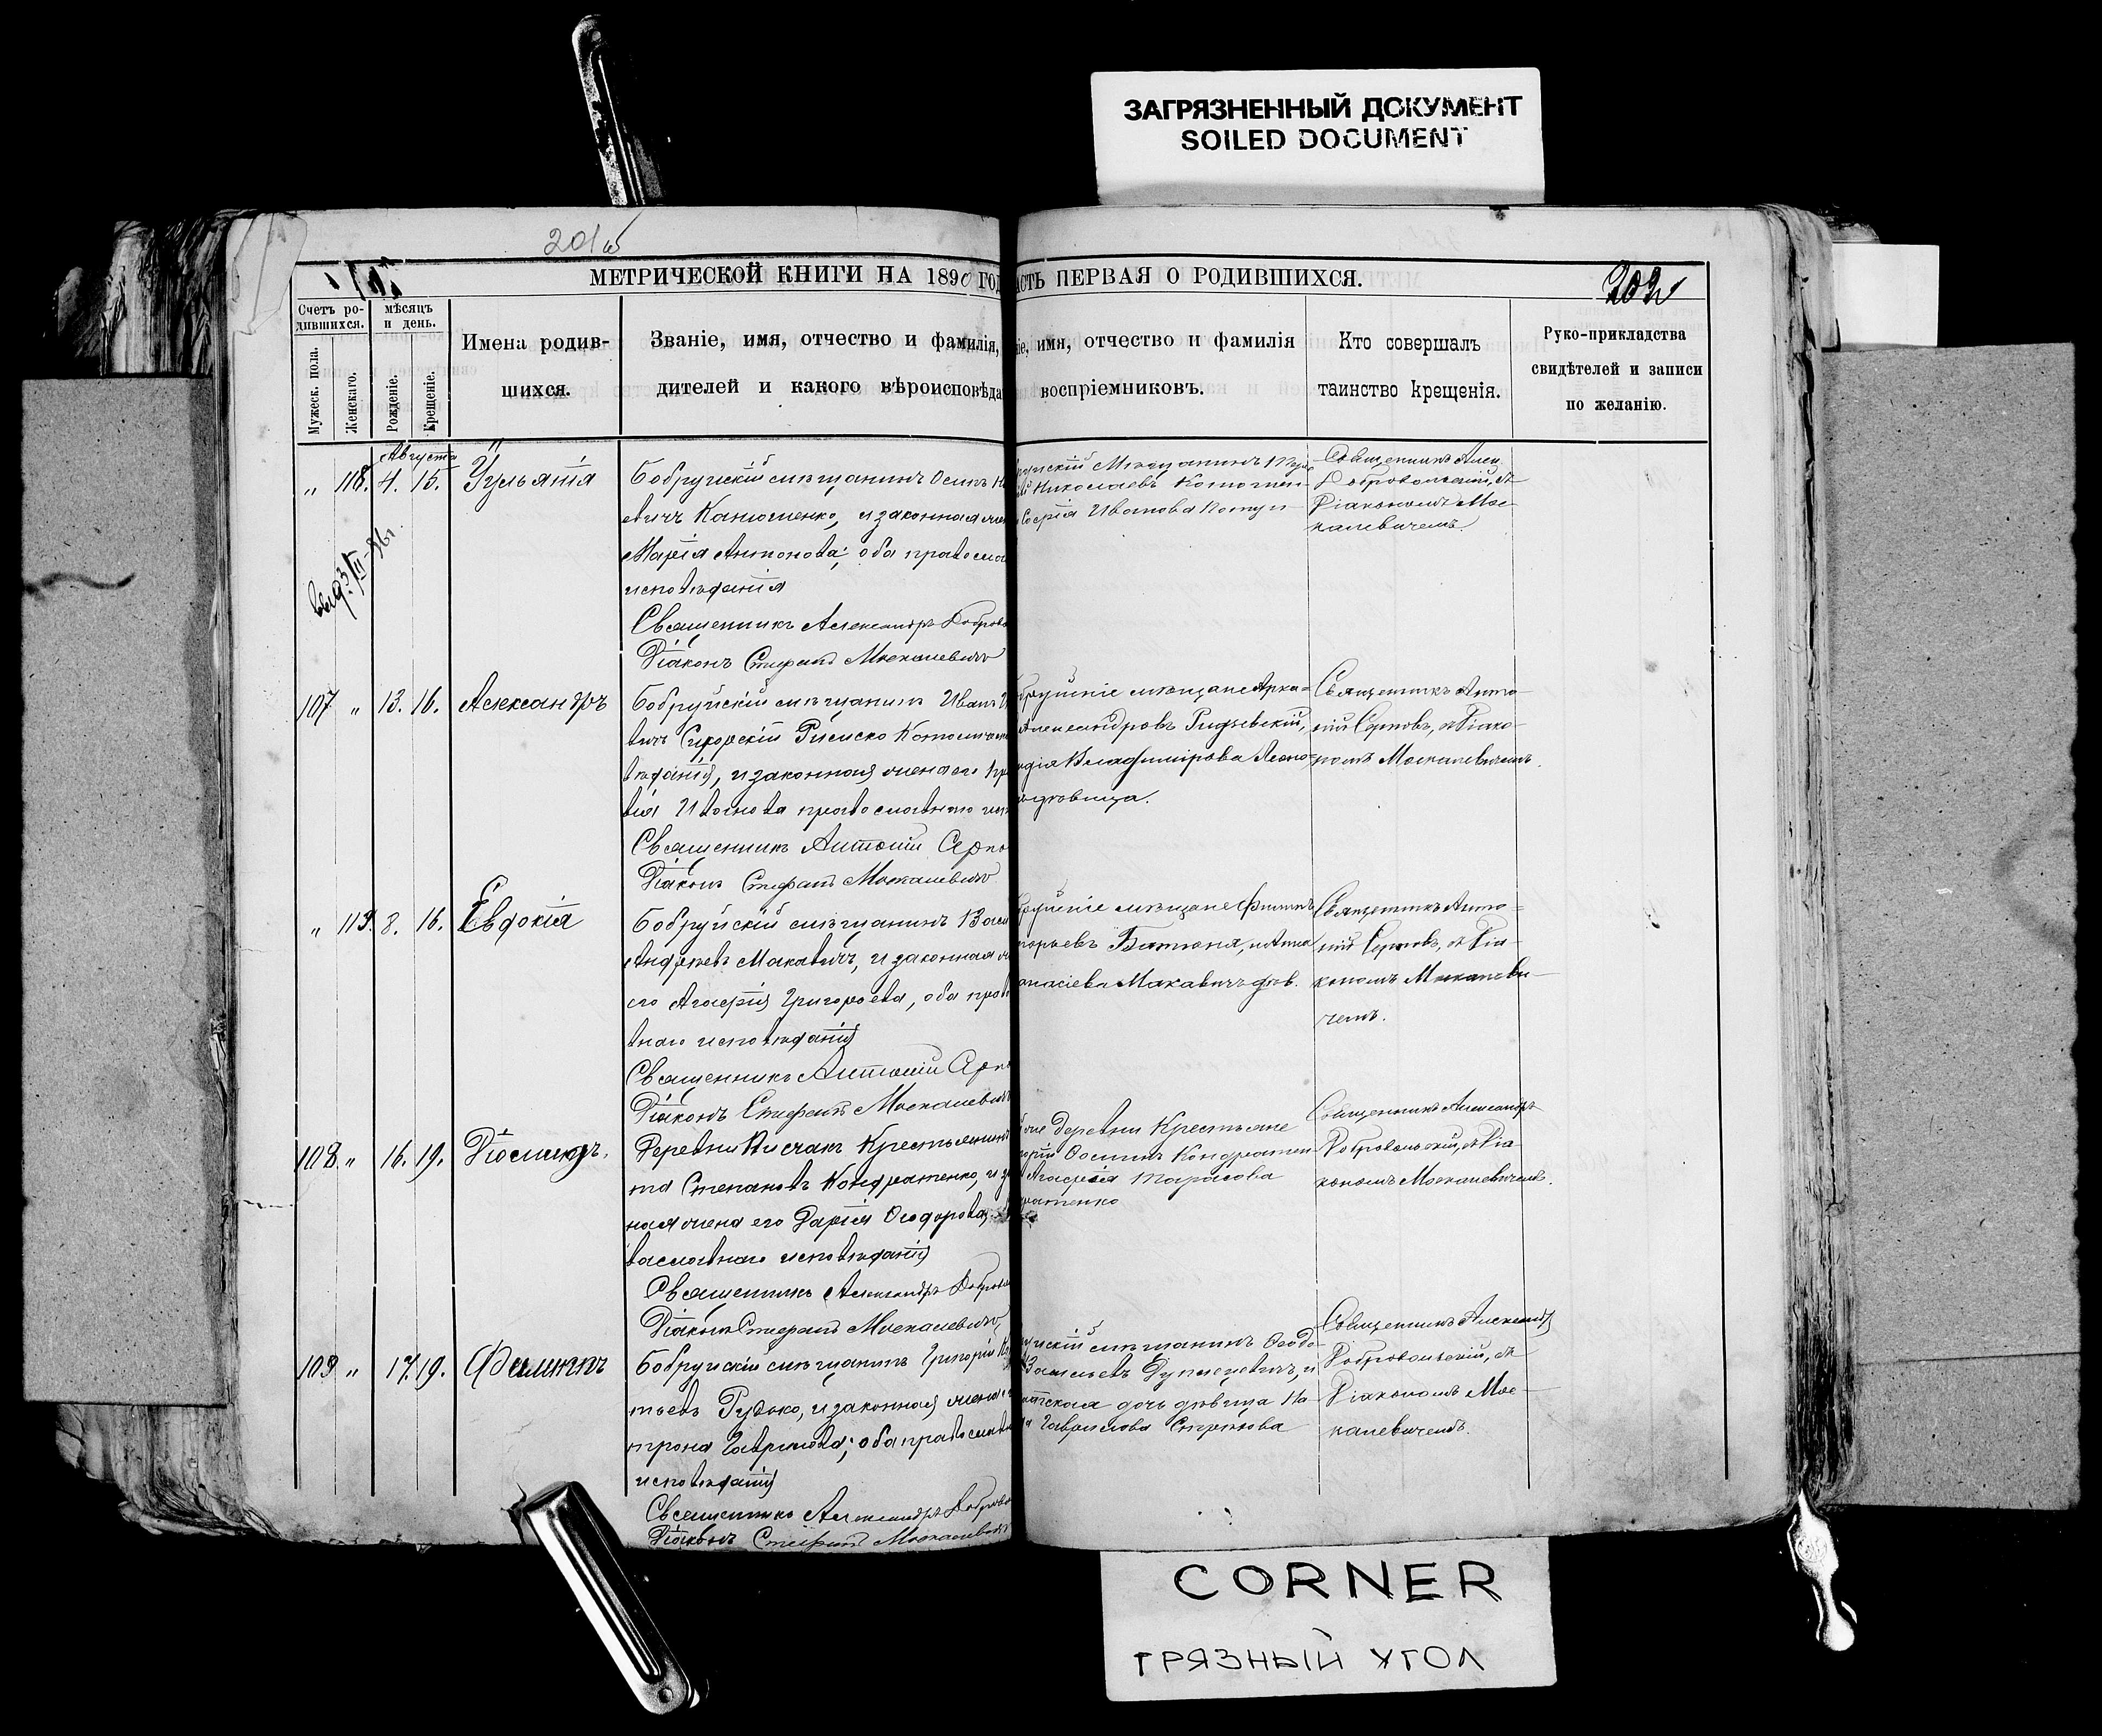 ЗАГРЯЗНЕННЫЙ ДОКУМЕНТ
SOILED DOCUMENT
201
202
МЕТРИЧЕСКОЙ КНИГИ НА 1890 ГОД
АСТЬ ПЕРВАЯ О РОДИВШИХСЯ.
Счетъ ро-
дившихся.
Мужеск. пола.
Женскаго.
мѣсяцъ
и день.
Рожденіе.
Крещеніе.
Имена родив-
шихся.
Званіе, имя, отчество и фамилія,
дителей и какого вѣроисповѣда
іе, имя, отчество и фамилія
воспріемниковъ.
Кто совершалъ
таинство крещенія.
Руко-прикладства
свидѣтелей и записи
по желанію.
Августа
" 118. 4. 15. Іульянія
Бобруйскій мѣщанинъ Осипъ
евичъ Канюшенко, и законная
Марія Антонова; оба правосла
исповѣданія
Священникъ Александръ Добров
Діаконъ Стефанъ Москалевичъ
Мѣщанинъ
Николаевъ
Софія Иванова
Священникъ Алек
Добровольскій, съ
Діакономъ Мос
калевичемъ.
107 " 13. 16. Александръ
Бобруйскій мѣщанинъ Иванъ
вичъ Сикорскій Римско Католическ
вѣданія, и законная жена его
вія Иванова православнаго
Священникъ Антоній Серно
Діаконъ Стефанъ Москалевичъ
бруйскіе мѣщане Арка-
Александровъ
Владимірова
Священникъ Анто-
ній Серновъ, съ Діако-
номъ Москалевичемъ.
" 119. 8. 16. Евдокія
Бобруйскій мѣщанинъ Васи
Андреевъ Макавичъ, и законная
его Агафія Григорьева, оба прав
внаго исповѣданія
Священникъ Антоній Серно
Діаконъ Стефанъ Москалевичъ
руйскіе мѣщане Филиппъ
горьевъ и Анна
анасіева Макавичъ дѣв.
Священникъ Анто-
ній Серновъ, съ Діа-
кономъ Москалеви-
чемъ.
108. " 16. 19. Діомидъ.
Деревни Кисчакъ Крестьянинъ
та Степановъ Кондратенко, и за
ная жена его Дарія Ѳеодорова,
вославнаго исповѣданія
Священникъ Александръ Добров
Діаконъ Стефанъ Москалевичъ
деревни Крестьяне
горій Осиповъ Кондратен
Агафія Тарасова
ратенко
Священникъ Александръ
Добровольскій, съ Діа-
кономъ Москалевичемъ.
109 " 17. 19. Филиппъ
Бобруйскій мѣщанинъ Григорій
тьевъ Рудько, и законная жена
трона Гаврилова; оба правосла
исповѣданія
Священникъ Александръ Добров
Діаконъ Стефанъ Москалевичъ
уйскій мѣщанинъ Ѳеодо
Васильевъ
дочь дѣвица На
Гаврилова
Священникъ Александр
Добровольскій, съ
Діакономъ Мос-
калевичемъ.
CORNER
ГРЯЗНЫЙ УГОЛ